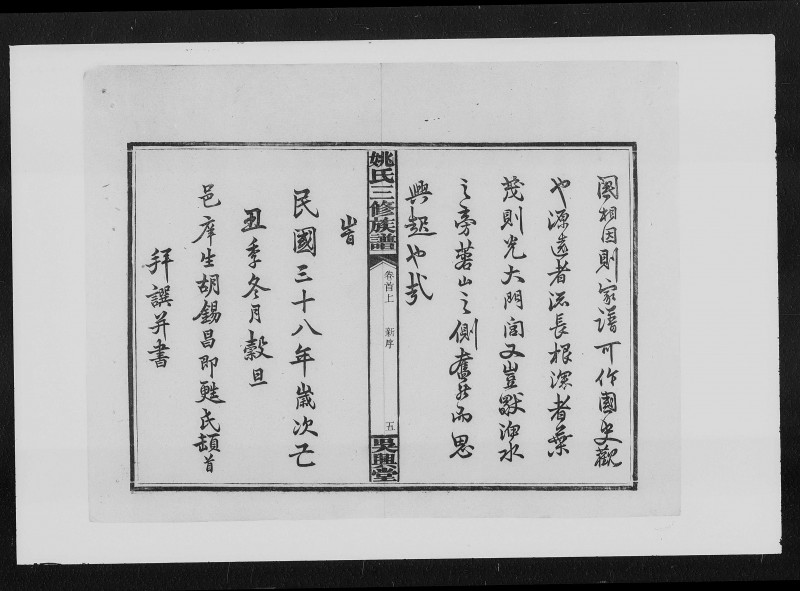 圂相因則家譜可作國史觀
也源遠者流長根深者葉
茂則光大門閭又豈獸洢水
之旁蒼山之側奮然而思
興起也哉
姚氏三修族譜
卷首上
新序
五
吳興堂
旹
民國三十八年歲次己
丑季冬月穀旦
邑庠生胡錫昌即甦氏頓首
拜譔并書